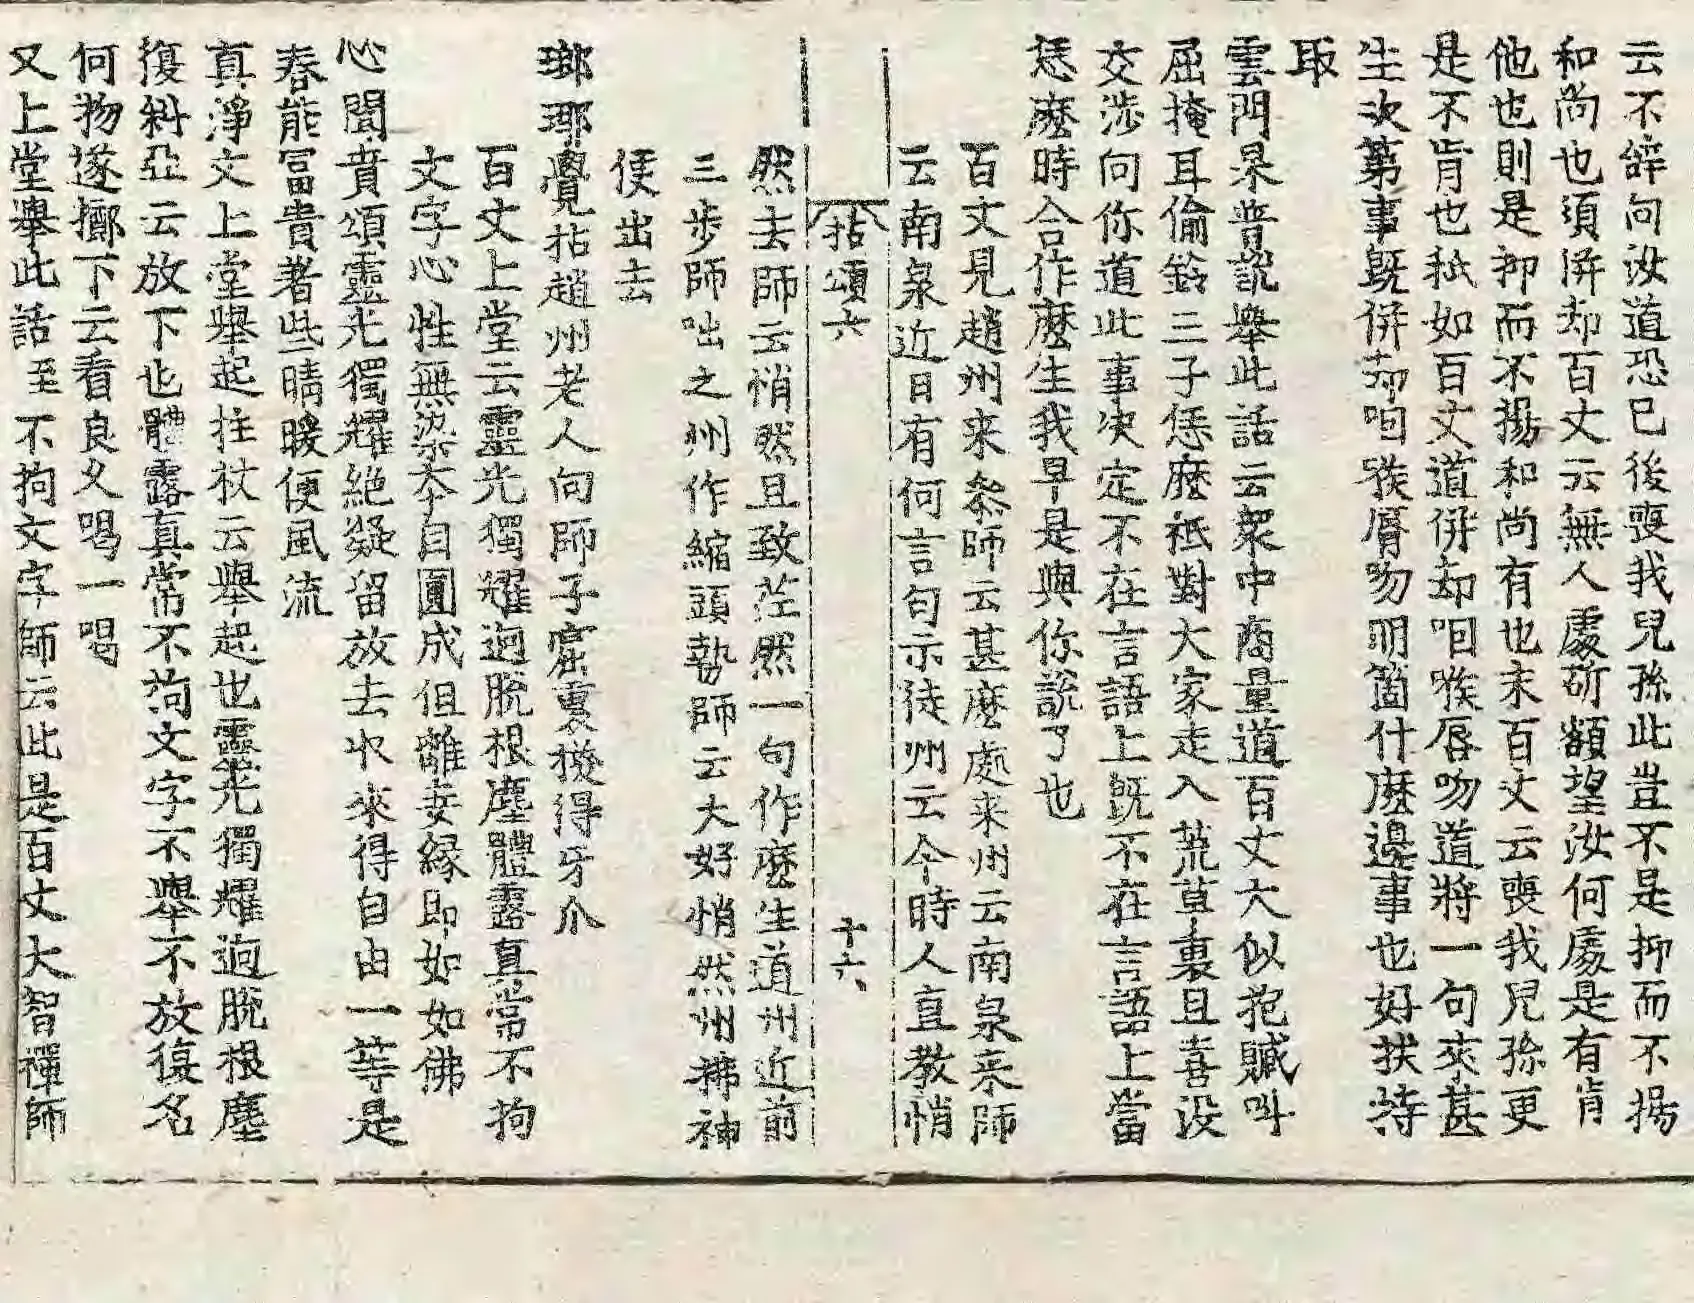 云不辝向汝道恐已後喪我兒孫此豈不是抑而不揚
和尚也須併却百丈云無人處斫額望汝何處是有肯
他也則是抑而不揚和尚有也未百丈云喪我兒孫更
是不肯也秖如百丈道併却咽喉唇吻道將一句來甚
生次第事既併却咽喉脣吻明箇什麽邊事也好扶持
取
雲門杲普說舉此話云衆中商量道百丈大似抱贓叫
屈掩耳偷鈴三子恁麽祗對大家走入荒草裏且喜没
交涉向你道此事决定不在言語上旣不在言語上當
恁麽時合作麽生我早是與你說了也
百丈見趙州来叅師云甚麽處来州云南泉来師
云南泉近日有何言句示徒州云今時人直教悄
拈頌六 十六
然去師云悄然且致茫然一句作麽生道州近前
三步師咄之州作縮頭勢師云大好悄然州拂袖
便出去
瑯琊覺拈趙州老人向師子窟裏㧞得牙爪
百丈上堂云靈光獨耀逈脫根塵體露真常不拘
文字心性無染本自圓成但離妄緣即如如佛
心聞賁頌靈光獨耀絕凝留放去收來得自由一等是
春能冨貴著些晴暖便風流
真淨文上堂舉起拄杖云舉起也靈光獨耀逈脫根塵
復斜亞云放下也體露真常不拘文字不舉不放復名
何物遂擲下云看良久喝一喝
又上堂舉此話至不拘文字師云此是百丈大智禪師